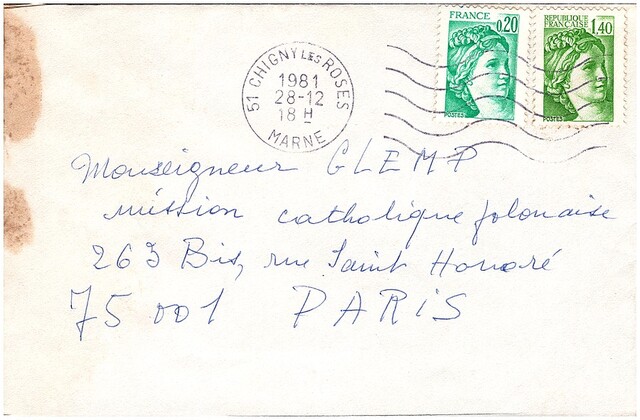 FRANCE 0,20
RÉPUBLIQUE FRANÇAISE 1,40
POSTES
POSTES
51 CHIGNY LES ROSES
1981
28-12
18 H
MARNE
Monseigneur GLEMP
mission catholique polonaise
263 Bis, rue Saint Honoré
75 001 PARiS